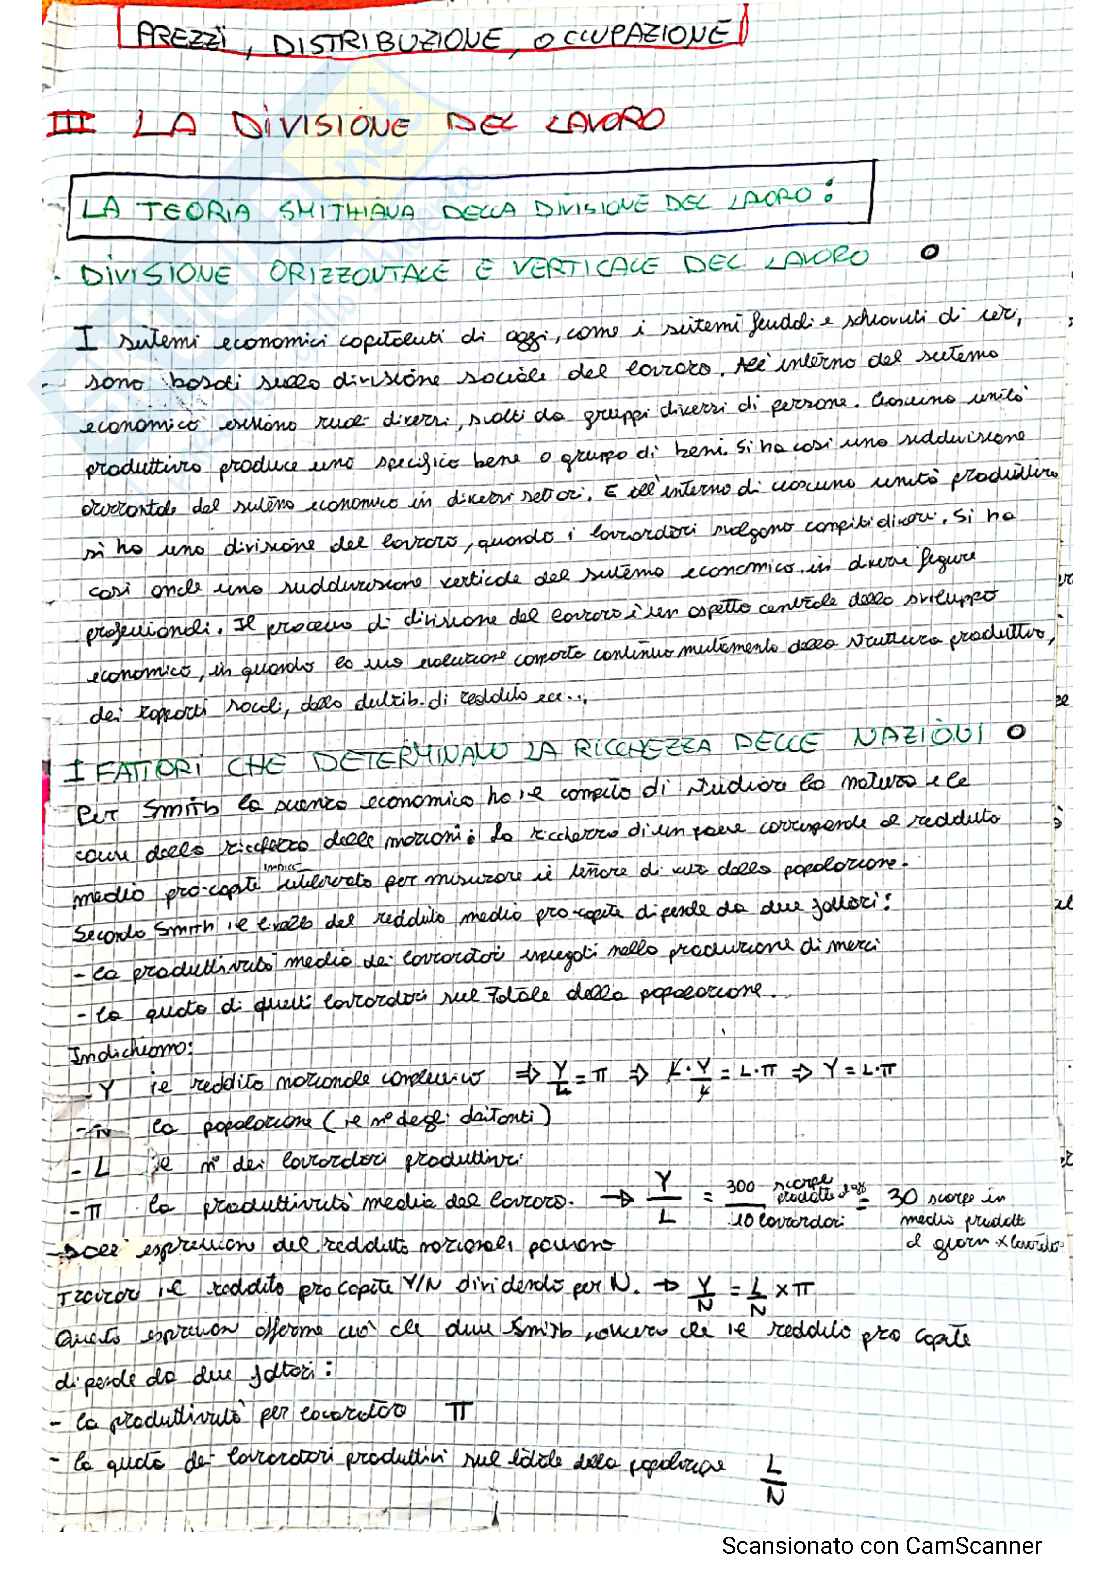 PREZZI, DISTRIBUZIONE, OCCUPAZIONE
III LA DIVISIONE DEL LAVORO
LA TEORIA SMITHIANA DELLA DIVISIONE DEL LAVORO:
DIVISIONE ORIZZONTALE E VERTICALE DEL LAVORO
I sistemi economici capitalisti di oggi, come i sistemi feudali e schiavisti di ieri,
sono basati sulla divisione sociale del lavoro. All'interno del sistema
economico esistono ruoli diversi, svolti da gruppi diversi di persone. Ciascuna unità
produttiva produce uno specifico bene o gruppo di beni. Si ha così una suddivisione
orizzontale del sistema economico in diversi settori. E all'interno di ciascuna unità produttiva
si ha una divisione del lavoro, quando i lavoratori svolgono compiti diversi. Si ha
così anche una suddivisione verticale del sistema economico in diverse figure
professionali. Il processo di divisione del lavoro è un aspetto centrale dello sviluppo
economico, in quanto la sua evoluzione comporta continuo mutamento della struttura produttiva,
dei rapporti sociali, della distrib. di reddito ecc...
I FATTORI CHE DETERMINANO LA RICCHEZZA DELLE NAZIONI
Per Smith la scienza economica ha il compito di studiare la natura e le
cause della ricchezza delle nazioni. La ricchezza di un paese corrisponde al reddito
medio pro-capite indice utilizzato per misurare il tenore di vita della popolazione.
Secondo Smith il livello del reddito medio pro-capite dipende da due fattori:
- la produttività media dei lavoratori impiegati nella produzione di merci
- la quota di quelli lavoratori sul totale della popolazione.
Indichiamo:
- Y il reddito nazionale complessivo ⇒ Y/L = π ⇒ L · Y/L = L·π ⇒ Y = L·π
- N la popolazione (il n° degli abitanti)
- L il n° dei lavoratori produttivi
- π la produttività media del lavoro. → Y/L = 300 scarpe prodotte / 10 lavoratori = 30 scarpe in
medio prodotte
al giorno x lavorato
→ Dall' espressione del reddito nazionale possiamo
trovare il reddito pro capite Y/N dividendo per N. → Y/N = L/N x π
Questa espression afferma ciò che dice Smith, ovvero che il reddito pro capite
dipende da due fattori:
- la produttività per lavoratore π
- la quota dei lavoratori produttivi sul totale della popolazione L/N
Scansionato con CamScanner